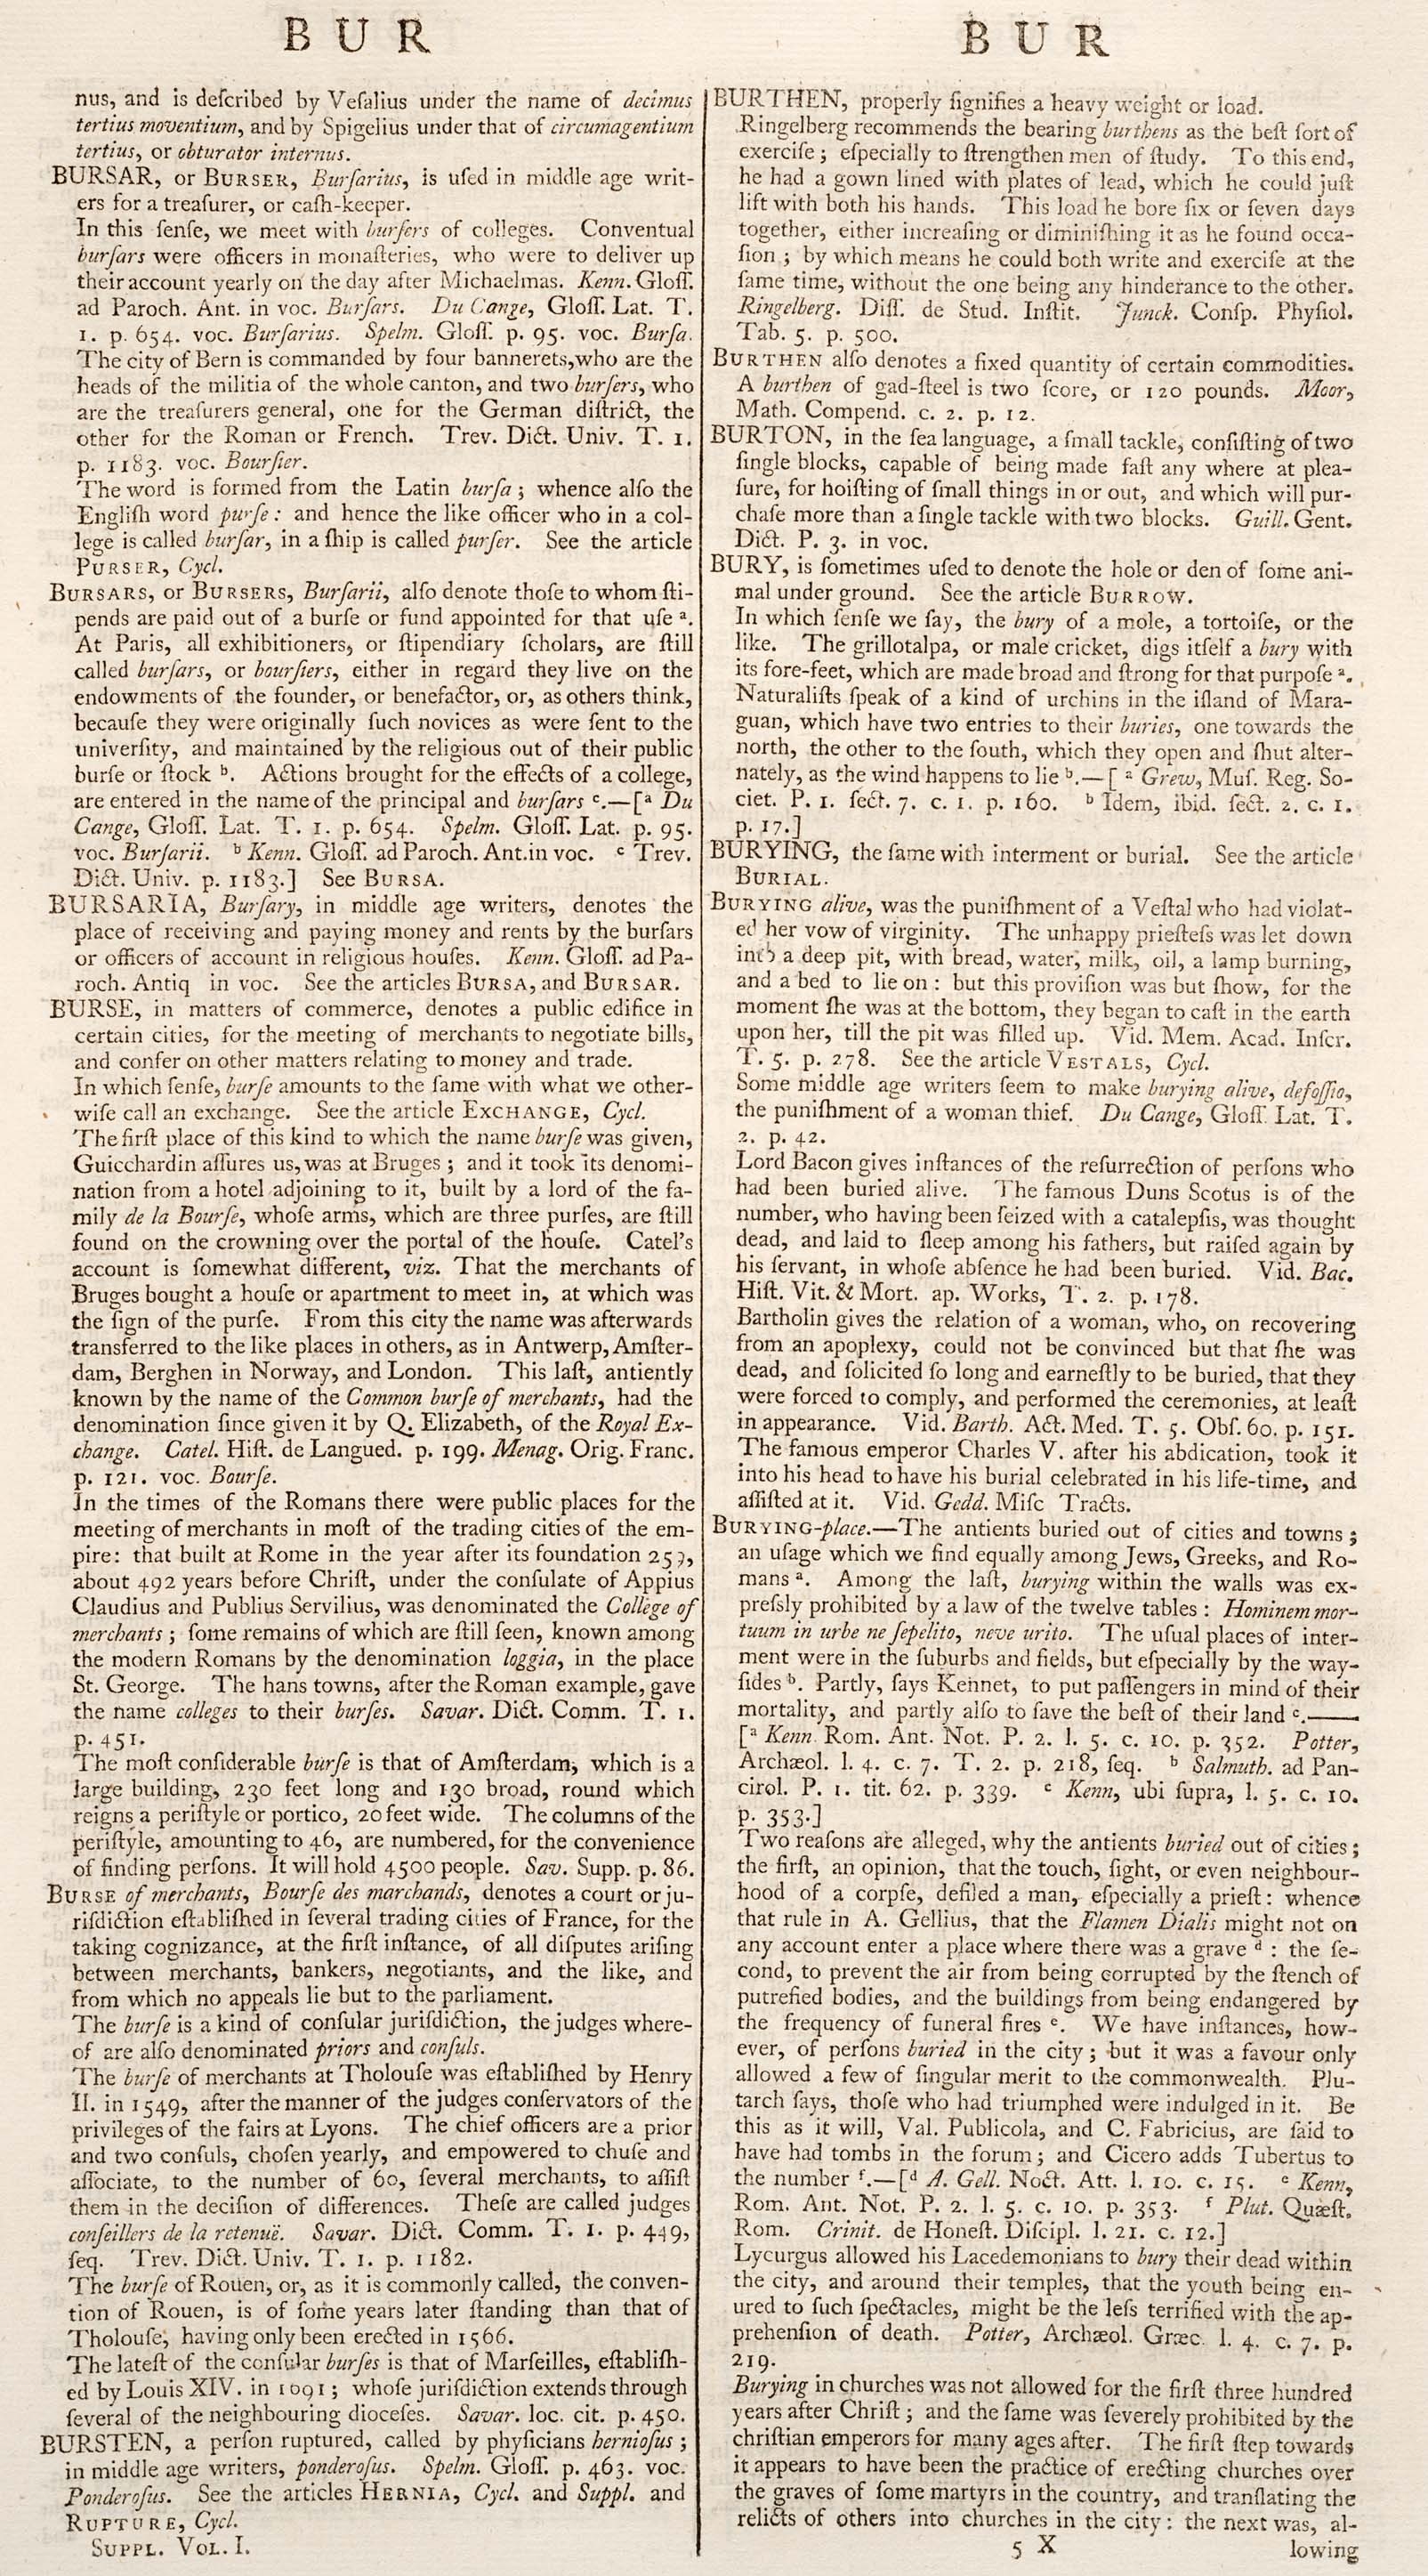 BUR
nus, and is deſcribed by Veſalius under the name of decimus
tertius moventium, and by Spigelius under that of circumagentium
tertius, or obturator internus.
BURSAR, or BURSER, Burſarius, is uſed in middle age writ-
ers for a treaſurer, or caſh-keeper.
In this ſenſe, we meet with burſers of colleges. Conventual
burſars were officers in monaſteries, who were to deliver up
their account yearly on the day after Michaelmas. Kenn. Gloſſ.
ad Paroch. Ant. in voc. Burſars. Du Cange, Gloſſ. Lat. T.
1. p. 654. voc. Burſarius. Spelm. Gloſſ. p. 95. voc. Burſa.
The city of Bern is commanded by four bannerets, who are the
heads of the militia of the whole canton, and two burſers, who
are the treaſurers general, one for the German diſtrict, the
other for the Roman or French. Trev. Dict. Univ. T. 1.
p. 1183. voc. Bourſier.
The word is formed from the Latin burſa; whence alſo the
Engliſh word purſe: and hence the like officer who in a col-
lege is called burſar, in a ſhip is called purſer. See the article
PURSER, Cycl.
BURSARS, or BURSERS, Burſarii, alſo denote thoſe to whom ſti-
pends are paid out of a burſe or fund appointed for that uſe a.
At Paris, all exhibitioners, or ſtipendiary ſcholars, are ſtill
called burſars, or bourſiers, either in regard they live on the
endowments of the founder, or benefactor, or, as others think,
becauſe they were originally ſuch novices as were ſent to the
univerſity, and maintained by the religious out of their public
burſe or ſtock b. Actions brought for the effects of a college,
are entered in the name of the principal and burſars c.—[a Du
Cange, Gloſſ. Lat. T. 1. p. 654. Spelm. Gloſſ. Lat. p. 95.
voc. Burſarii. b Kenn. Gloſſ. ad Paroch. Ant. in voc. c Trev.
Dict. Univ. p. 1183.] See BURSA.
BURSARIA, Burſary, in middle age writers, denotes the
place of receiving and paying money and rents by the burſars
or officers of account in religious houſes. Kenn. Gloſſ. ad Pa-
roch. Antiq in voc. See the articles BURSA, and BURSAR.
BURSE, in matters of commerce, denotes a public edifice in
certain cities, for the meeting of merchants to negotiate bills,
and confer on other matters relating to money and trade.
In which ſenſe, burſe amounts to the ſame with what we other-
wiſe call an exchange. See the article EXCHANGE, Cycl.
The firſt place of this kind to which the name burſe was given,
Guicchardin aſſures us, was at Bruges; and it took its denomi-
nation from a hotel adjoining to it, built by a lord of the fa-
mily de la Bourſe, whoſe arms, which are three purſes, are ſtill
found on the crowning over the portal of the houſe. Catel's
account is ſomewhat different, viz. That the merchants of
Bruges bought a houſe or apartment to meet in, at which was
the ſign of the purſe. From this city the name was afterwards
transferred to the like places in others, as in Antwerp, Amſter-
dam, Berghen in Norway, and London. This laſt, antiently
known by the name of the Common burſe of merchants, had the
denomination ſince given it by Q. Elizabeth, of the Royal Ex-
change. Catel. Hiſt. de Langued. p. 199. Menag. Orig. Franc.
p. 121. voc. Bourſe.
In the times of the Romans there were public places for the
meeting of merchants in moſt of the trading cities of the em-
pire: that built at Rome in the year after its foundation 259,
about 492 years before Chriſt, under the conſulate of Appius
Claudius and Publius Servilius, was denominated the College of
merchants; ſome remains of which are ſtill ſeen, known among
the modern Romans by the denomination loggia, in the place
St. George. The hans towns, after the Roman example, gave
the name colleges to their burſes. Savar. Dict. Comm. T. 1.
p. 451.
The moſt conſiderable burſe is that of Amſterdam, which is a
large building, 230 feet long and 130 broad, round which
reigns a periſtyle or portico, 20 feet wide. The columns of the
periſtyle, amounting to 46, are numbered, for the convenience
of finding perſons. It will hold 4500 people. Sav. Supp. p. 86.
BURSE of merchants, Bourſe des marchands, denotes a court or ju-
riſdiction eſtabliſhed in ſeveral trading cities of France, for the
taking cognizance, at the firſt inſtance, of all diſputes ariſing
between merchants, bankers, negotiants, and the like, and
from which no appeals lie but to the parliament.
The burſe is a kind of conſular juriſdiction, the judges where-
of are alſo denominated priors and conſuls.
The burſe of merchants at Tholouſe was eſtabliſhed by Henry
II. in 1549, after the manner of the judges conſervators of the
privileges of the fairs at Lyons. The chief officers are a prior
and two conſuls, choſen yearly, and empowered to chuſe and
aſſociate, to the number of 60, ſeveral merchants, to aſſiſt
them in the deciſion of differences. Theſe are called judges
conſeillers de la retenuë. Savar. Dict. Comm. T. 1. p. 449,
ſeq. Trev. Dict. Univ. T. 1. p. 1182.
The burſe of Rouen, or, as it is commonly called, the conven-
tion of Rouen, is of ſome years later ſtanding than that of
Tholouſe, having only been erected in 1566.
The lateſt of the conſular burſes is that of Marſeilles, eſtabliſh-
ed by Louis XIV. in 1691; whoſe juriſdiction extends through
ſeveral of the neighbouring dioceſes. Savar. loc. cit. p. 450.
BURSTEN, a perſon ruptured, called by phyſicians hernioſus;
in middle age writers, ponderoſus. Spelm. Gloſſ. p. 463. voc.
Ponderoſus. See the articles HERNIA, Cycl. and Suppl. and
RUPTURE, Cycl.
SUPPL. VOL. I.
BUR
BURTHEN, properly ſignifies a heavy weight or load.
Ringelberg recommends the bearing burthens as the beſt ſort of
exerciſe; eſpecially to ſtrengthen men of ſtudy. To this end,
he had a gown lined with plates of lead, which he could juſt
lift with both his hands. This load he bore ſix or ſeven days
together, either increaſing or diminiſhing it as he found occa-
ſion; by which means he could both write and exerciſe at the
ſame time, without the one being any hinderance to the other.
Ringelberg. Diſſ. de Stud. Inſtit. Junck. Conſp. Phyſiol.
Tab. 5. p. 500.
BURTHEN alſo denotes a fixed quantity of certain commodities.
A burthen of gad-ſteel is two ſcore, or 120 pounds. Moor,
Math. Compend. c. 2. p. 12.
BURTON, in the ſea language, a ſmall tackle, conſiſting of two
ſingle blocks, capable of being made faſt any where at plea-
ſure, for hoiſting of ſmall things in or out, and which will pur-
chaſe more than a ſingle tackle with two blocks. Guill. Gent.
Dict. P. 3. in voc.
BURY, is ſometimes uſed to denote the hole or den of ſome ani-
mal under ground. See the article BURROW.
In which ſenſe we ſay, the bury of a mole, a tortoiſe, or the
like. The grillotalpa, or male cricket, digs itſelf a bury with
its fore-feet, which are made broad and ſtrong for that purpoſe a.
Naturaliſts ſpeak of a kind of urchins in the iſland of Mara-
guan, which have two entries to their buries, one towards the
north, the other to the ſouth, which they open and ſhut alter-
nately, as the wind happens to lie b.—[ a Grew, Muſ. Reg. So-
ciet. P. 1. ſect. 7. c. 1. p. 160. b Idem, ibid. ſect. 2. c. 1.
p. 17.]
BURYING, the ſame with interment or burial. See the article
BURIAL.
BURYING alive, was the puniſhment of a Veſtal who had violat-
ed her vow of virginity. The unhappy prieſteſs was let down
into a deep pit, with bread, water, milk, oil, a lamp burning,
and a bed to lie on: but this proviſion was but ſhow, for the
moment ſhe was at the bottom, they began to caſt in the earth
upon her, till the pit was filled up. Vid. Mem. Acad. Inſcr.
T. 5. p. 278. See the article VESTALS, Cycl.
Some middle age writers ſeem to make burying alive, defoſſio,
the puniſhment of a woman thief. Du Cange, Gloſſ. Lat. T.
2. p. 42.
Lord Bacon gives inſtances of the reſurrection of perſons who
had been buried alive. The famous Duns Scotus is of the
number, who having been ſeized with a catalepſis, was thought
dead, and laid to ſleep among his fathers, but raiſed again by
his ſervant, in whoſe abſence he had been buried. Vid. Bac.
Hiſt. Vit. & Mort. ap. Works, T. 2. p. 178.
Bartholin gives the relation of a woman, who, on recovering
from an apoplexy, could not be convinced but that ſhe was
dead, and ſolicited ſo long and earneſtly to be buried, that they
were forced to comply, and performed the ceremonies, at leaſt
in appearance. Vid. Barth. Act. Med. T. 5. Obſ. 60. p. 151.
The famous emperor Charles V. after his abdication, took it
into his head to have his burial celebrated in his life-time, and
aſſiſted at it. Vid. Gedd. Miſc Tracts.
BURYING-place.—The antients buried out of cities and towns;
an uſage which we find equally among Jews, Greeks, and Ro-
mans a. Among the laſt, burying within the walls was ex-
preſsly prohibited by a law of the twelve tables: Hominem mor-
tuum in urbe ne ſepelito, neve urito. The uſual places of inter-
ment were in the ſuburbs and fields, but eſpecially by the way-
ſides b. Partly, ſays Kennet, to put paſſengers in mind of their
mortality, and partly alſo to ſave the beſt of their land c.——
[a Kenn. Rom. Ant. Not. P. 2. l. 5. c. 10. p. 352. Potter,
Archæol. l. 4. c. 7. T. 2. p. 218, ſeq. b Salmuth. ad Pan-
cirol. P. 1. tit. 62. p. 339. c Kenn, ubi ſupra, l. 5. c. 10.
p. 353.]
Two reaſons are alleged, why the antients buried out of cities;
the firſt, an opinion, that the touch, ſight, or even neighbour-
hood of a corpſe, defiled a man, eſpecially a prieſt: whence
that rule in A. Gellius, that the Flamen Dialis might not on
any account enter a place where there was a grave d: the ſe-
cond, to prevent the air from being corrupted by the ſtench of
putrefied bodies, and the buildings from being endangered by
the frequency of funeral fires e. We have inſtances, how-
ever, of perſons buried in the city; but it was a favour only
allowed a few of ſingular merit to the commonwealth. Plu-
tarch ſays, thoſe who had triumphed were indulged in it. Be
this as it will, Val. Publicola, and C. Fabricius, are ſaid to
have had tombs in the forum; and Cicero adds Tubertus to
the number f.—[d A. Gell. Noct. Att. l. 10. c. 15. e Kenn,
Rom. Ant. Not. P. 2. l. 5. c. 10. p. 353. f Plut. Quæſt.
Rom. Crinit. de Honeſt. Diſcipl. l. 21. c. 12.]
Lycurgus allowed his Lacedemonians to bury their dead within
the city, and around their temples, that the youth being en-
ured to ſuch ſpectacles, might be the leſs terrified with the ap-
prehenſion of death. Potter, Archæol. Græc. l. 4. c. 7. p.
219.
Burying in churches was not allowed for the firſt three hundred
years after Chriſt; and the ſame was ſeverely prohibited by the
chriſtian emperors for many ages after. The firſt ſtep towards
it appears to have been the practice of erecting churches over
the graves of ſome martyrs in the country, and tranſlating the
relicts of others into churches in the city: the next was, al-
5 X
lowing